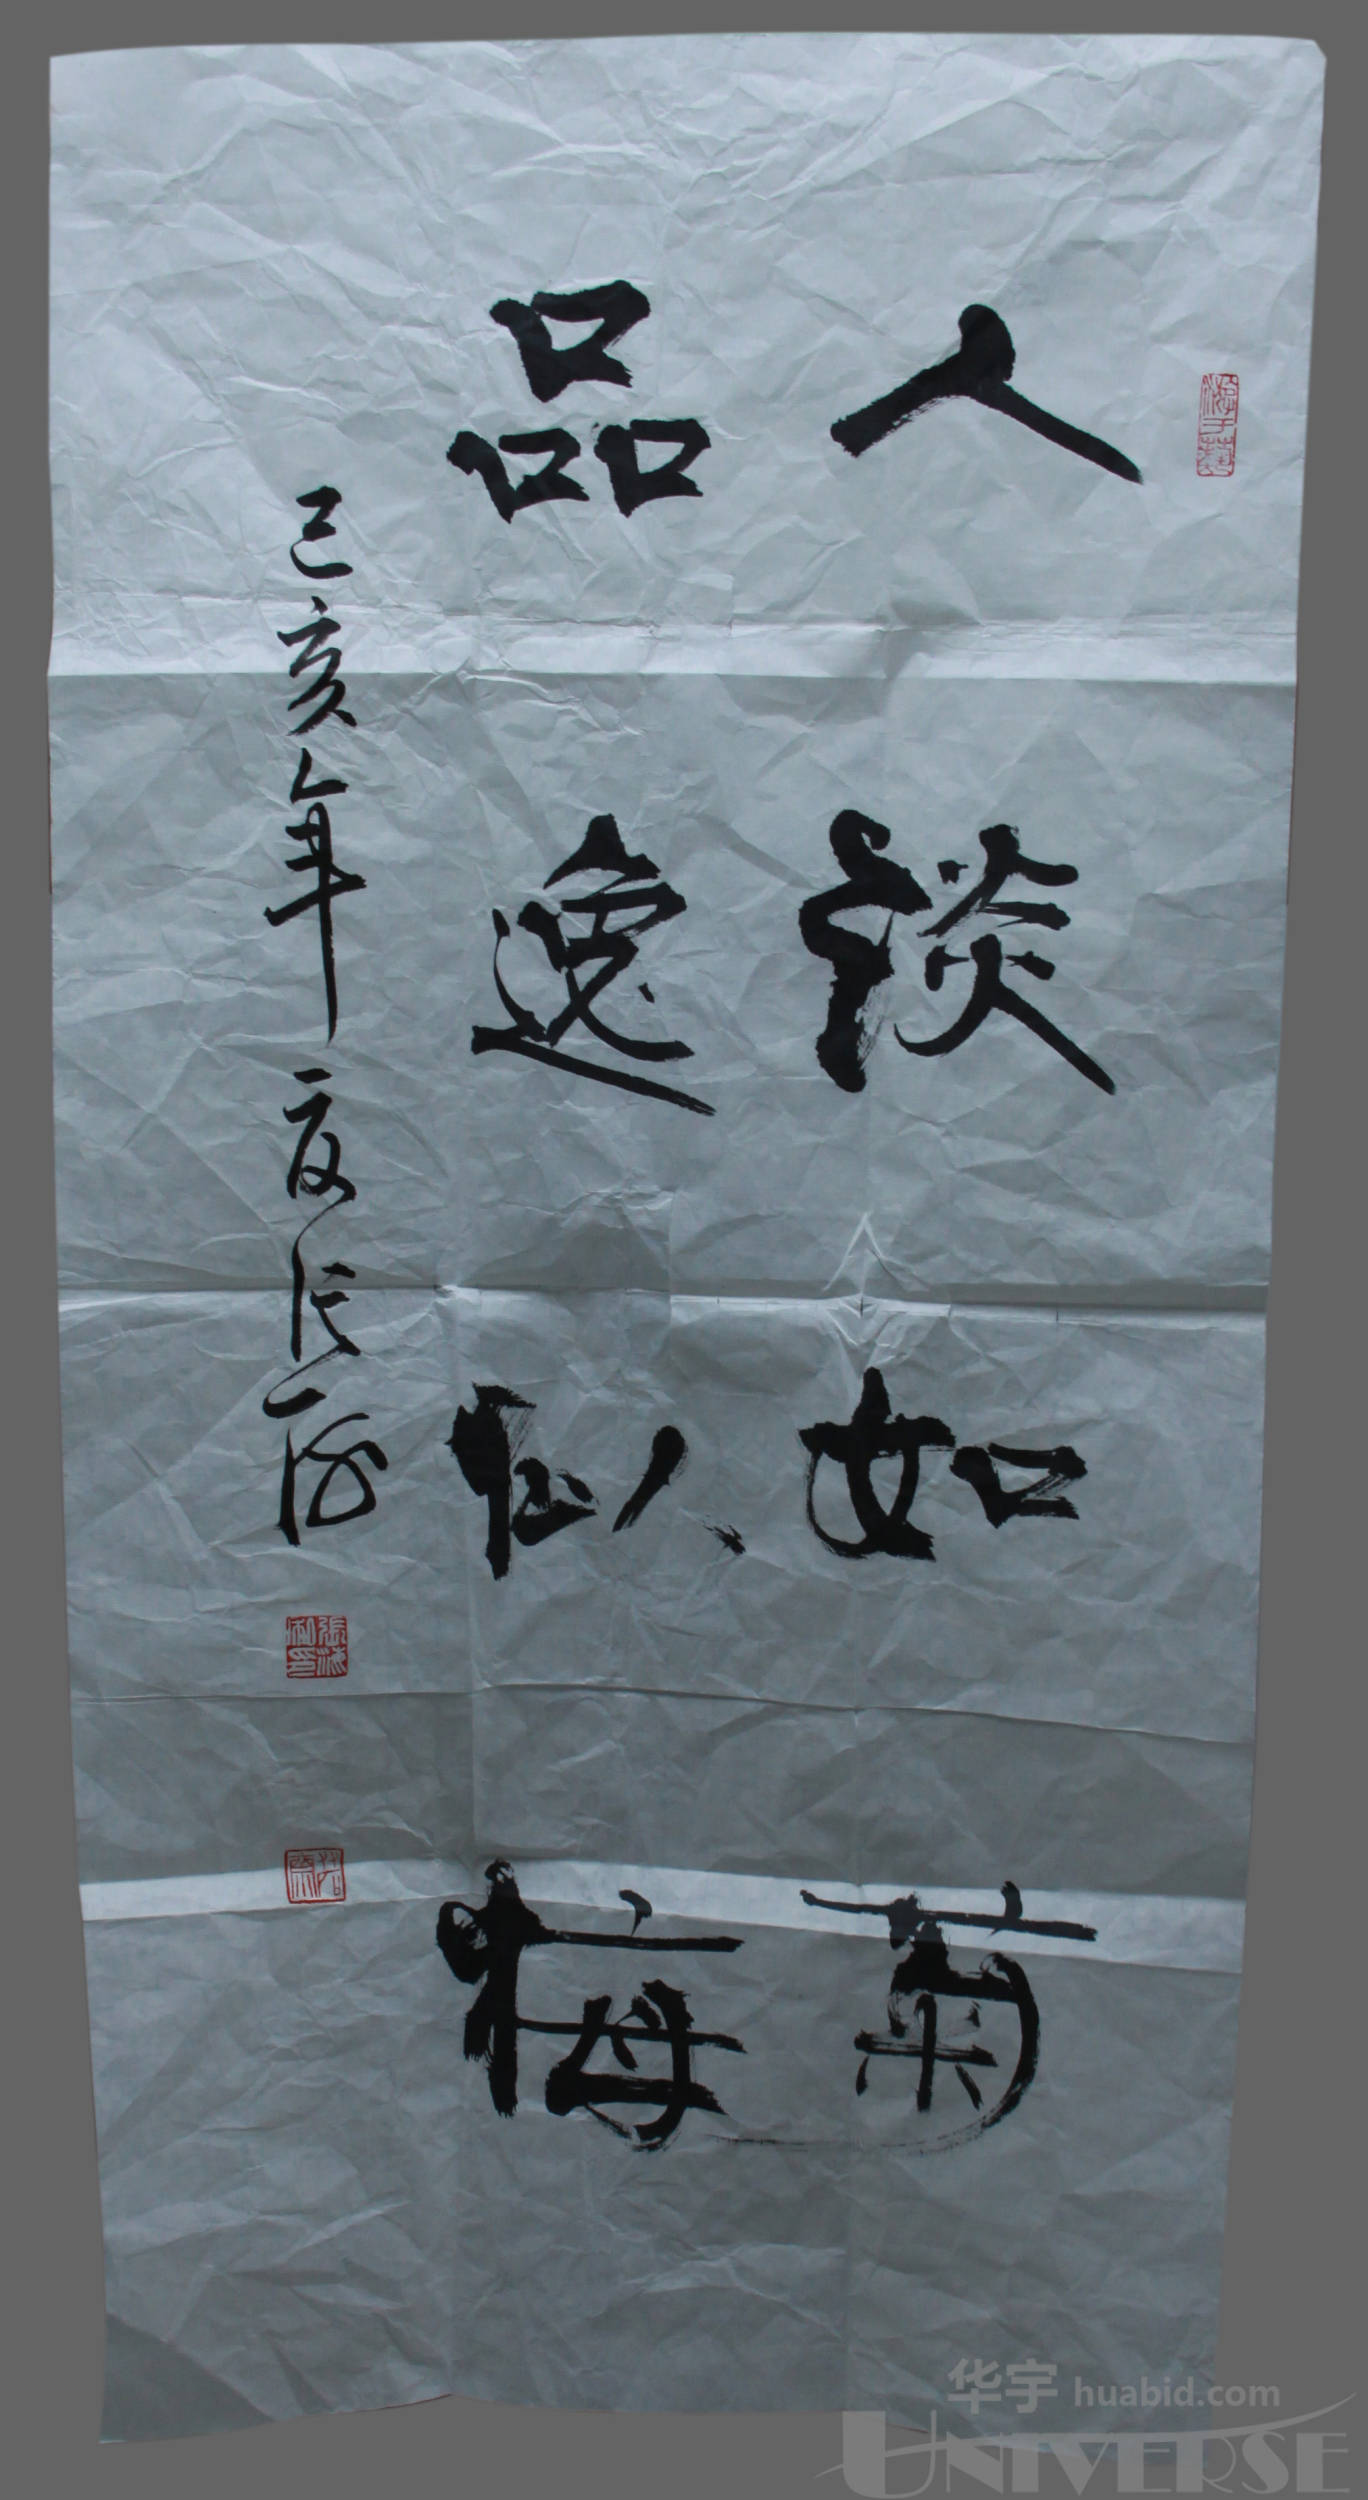 人淡如菊
品逸似梅
己亥年夏张
游于艺
华宇 huabid.com
UNIVERSE